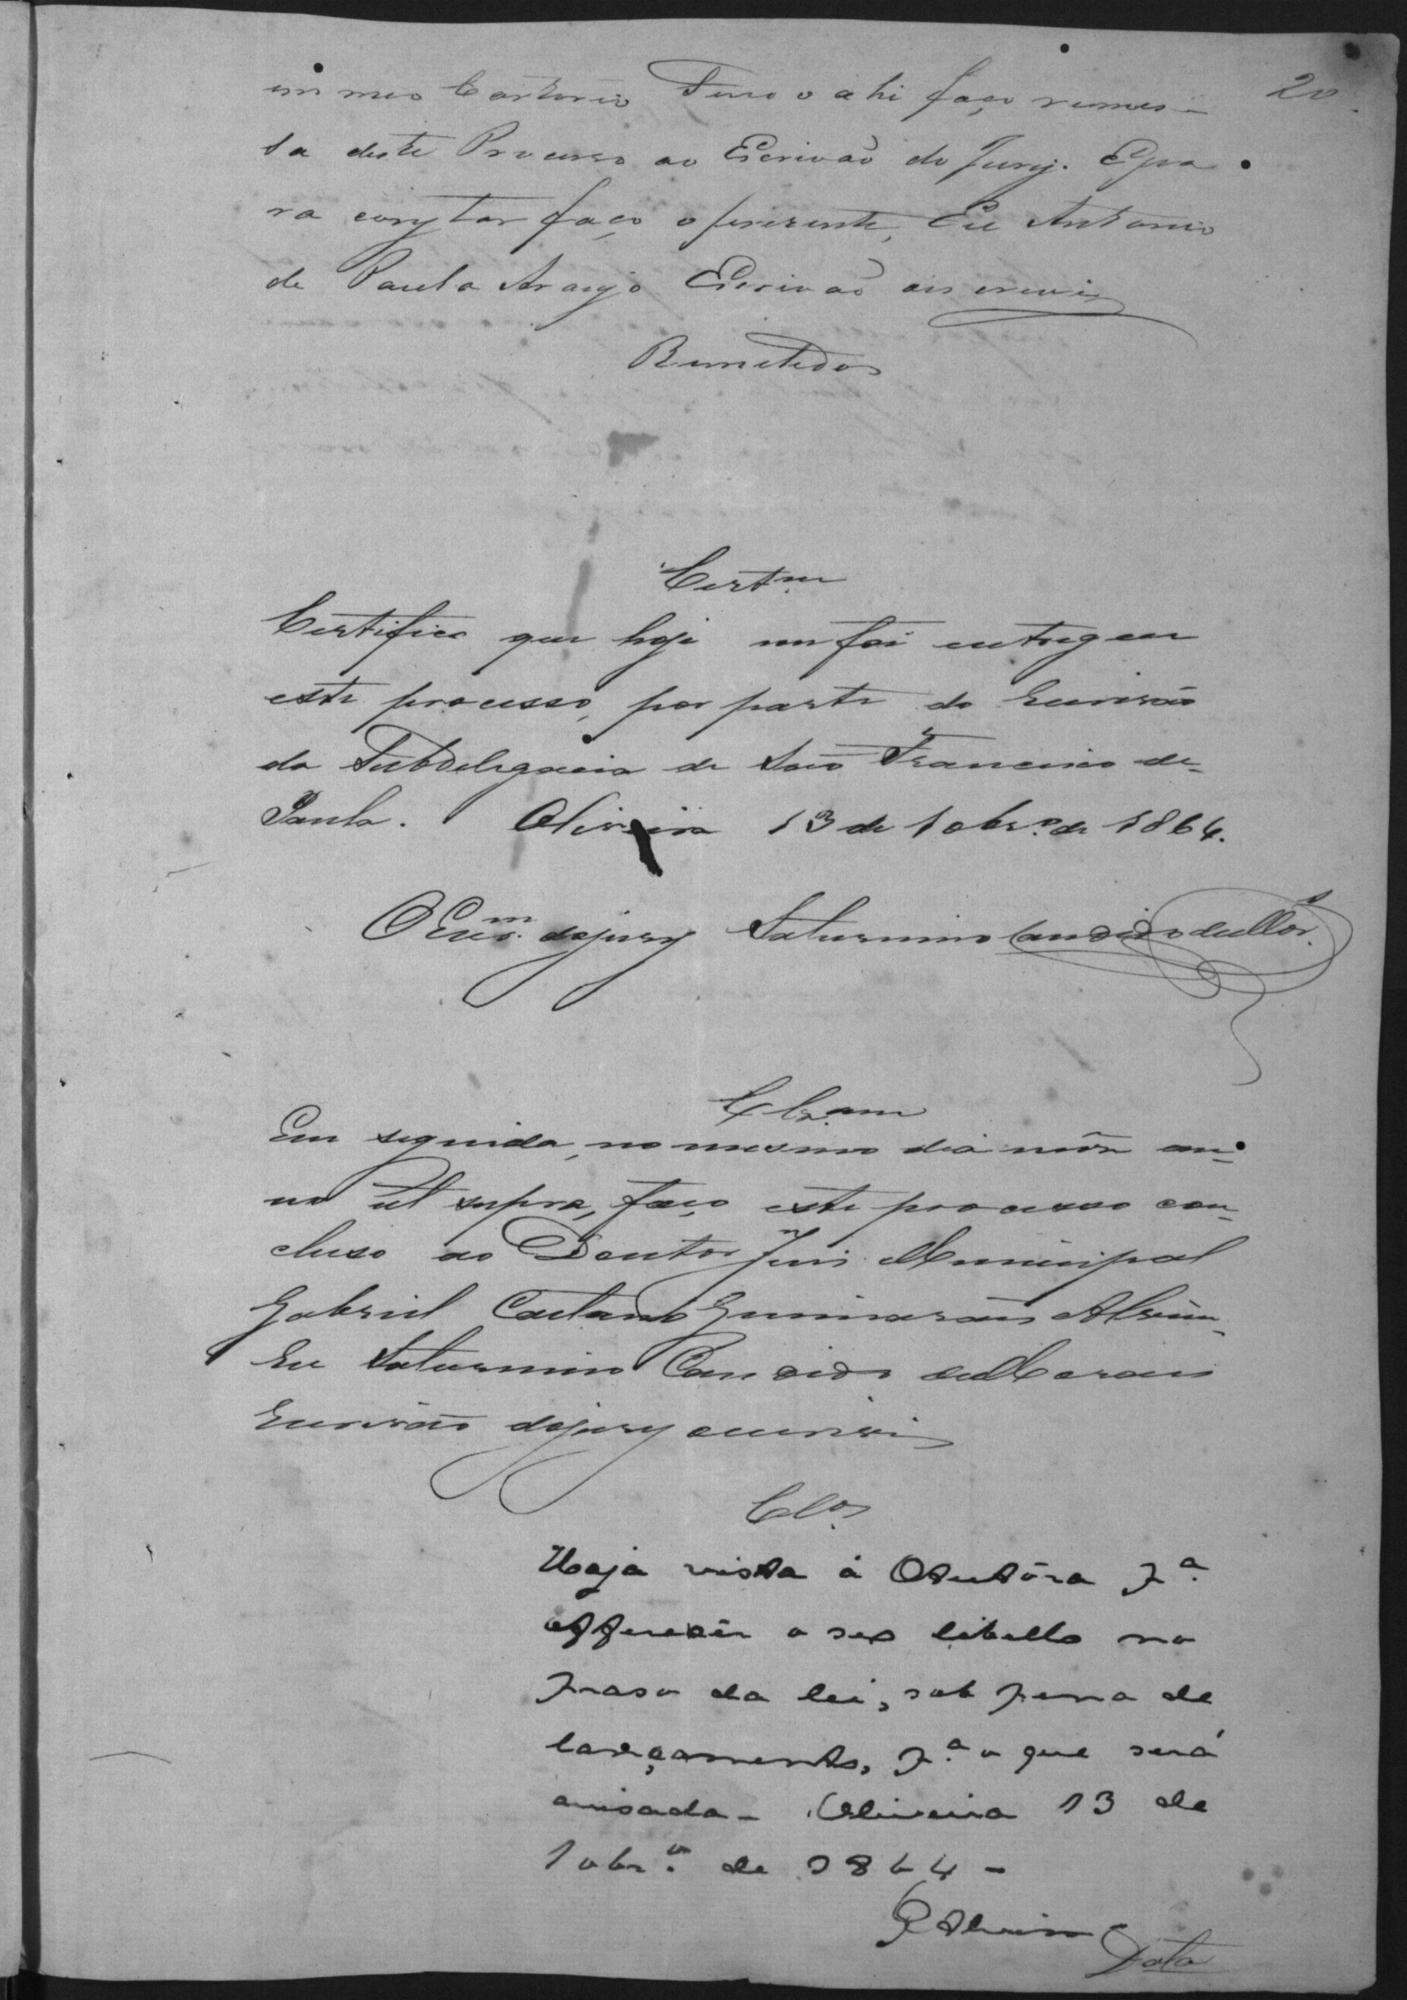 20
em meo Cartorio Termo ahi faço remes-
sa deste Processo ao Escrivão do Jury. E pa
ra constar faço o prezente, Eu Antonio
de Paula Araujo Escrivão que escrevi
Remetidos
Cert.m
Certifico que hoje me foi entregue
este processo, por parte do Escrivão
da Subdelegacia de São Francisco de
Paula. Oliveira 13 de 10br.o de 1864.
O Escr.m do jury Saturnino Candido de Mor.s
Cls.am
Em seguida, no mesmo dia mês an-
no ut supra, faço este processo con-
cluso ao Doutor Juis Municipal
Gabriel Caetano Guimarães Alvim
Eu Saturnino Candido de Moraes
Escrivão do jury escrevi
Cl.os
Haja vista á Autôra p.a
offerecêr o seo libello no
praso da lei, sob pena de
lançamento, p.a o que será
avisada - Oliveira 13 de
10br.o de 1864 -
G Alvim
Data